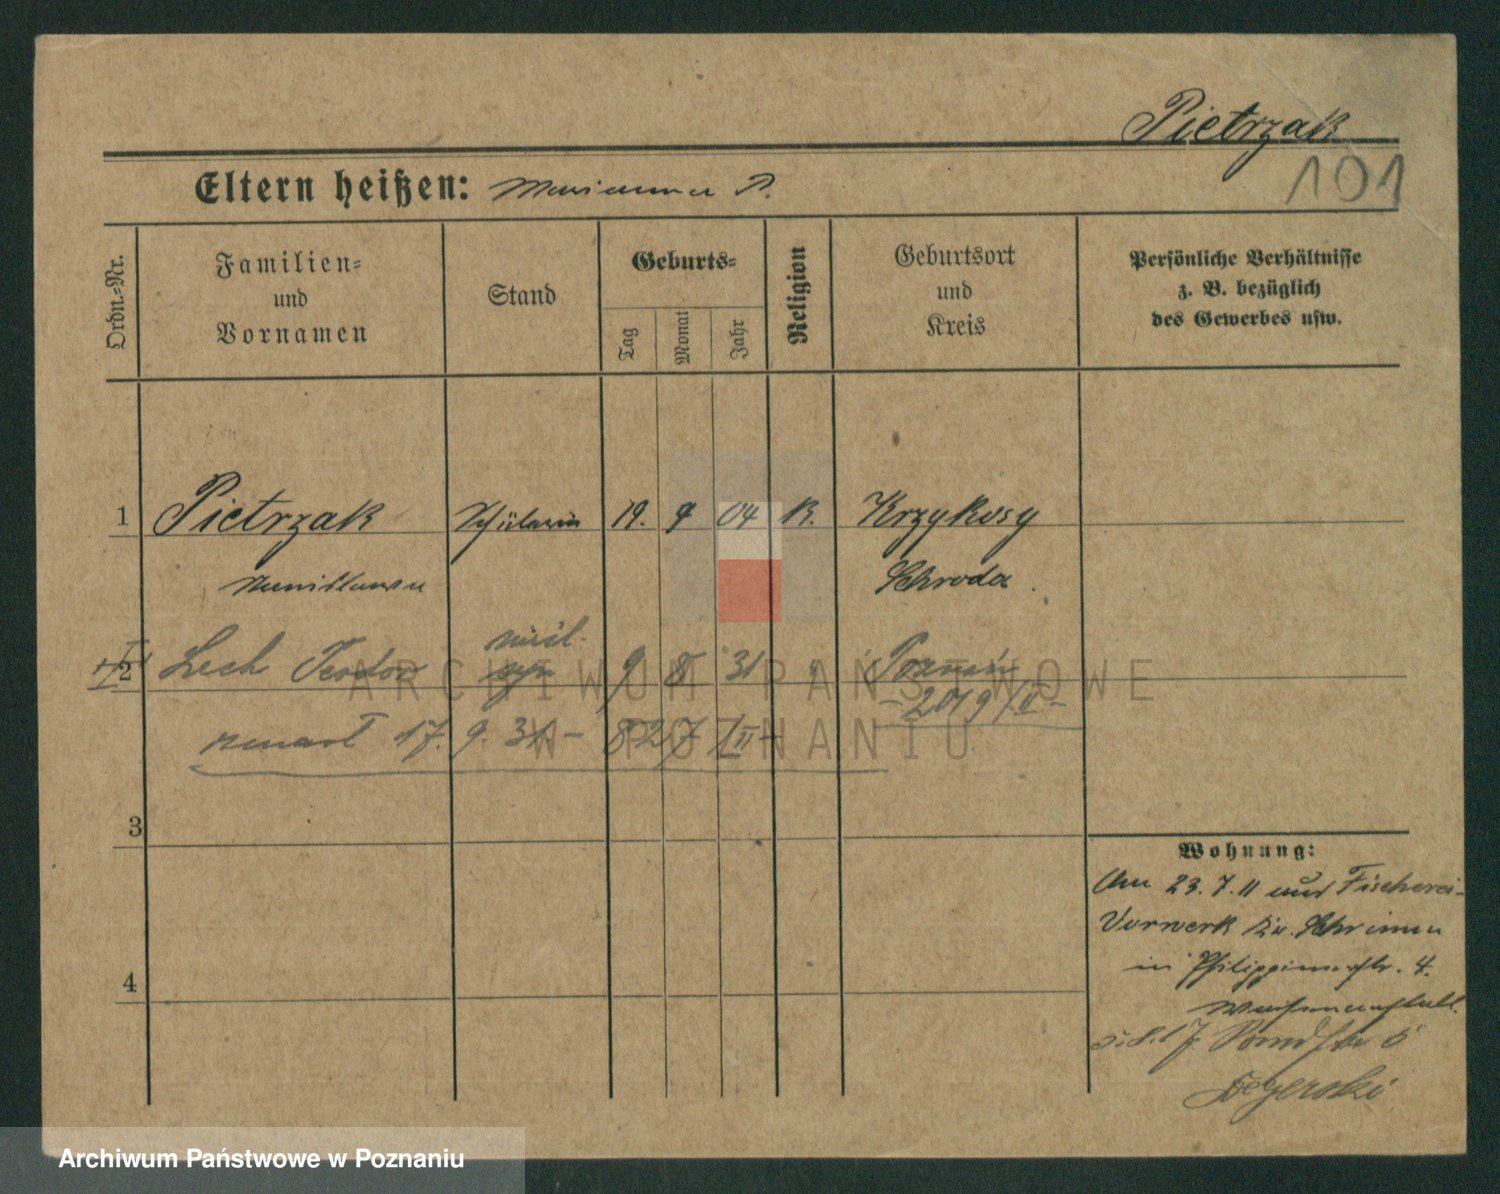 Pietrzak
101
Eltern heißen: Marianna P.
Ordn.-Nr.
Familien-
und
Vornamen
Stand
Geburts-
Tag
Monat
Jahr
Religion
Geburtsort
und
Kreis
Persönliche Verhältnisse
z. B. bezüglich
des Gewerbes usw.
1 Pietrzak Schülerin 19. 9 04 K. Krzykosy
Stanislawa Schroda
nieśl.
2 Lech Teodor syn 9 8 31 Poznań
2019/II
zmarł 17. 9. 31 - 827/II
3
4
Wohnung:
Am 23. 7. 11 aus Fischerei-
Vorwerk Kr. Schrimm
in Philippinenstr. 4.
Waisenanstalt.
ARCHIWUM PAŃSTWOWE
W POZNANIU
Archiwum Państwowe w Poznaniu